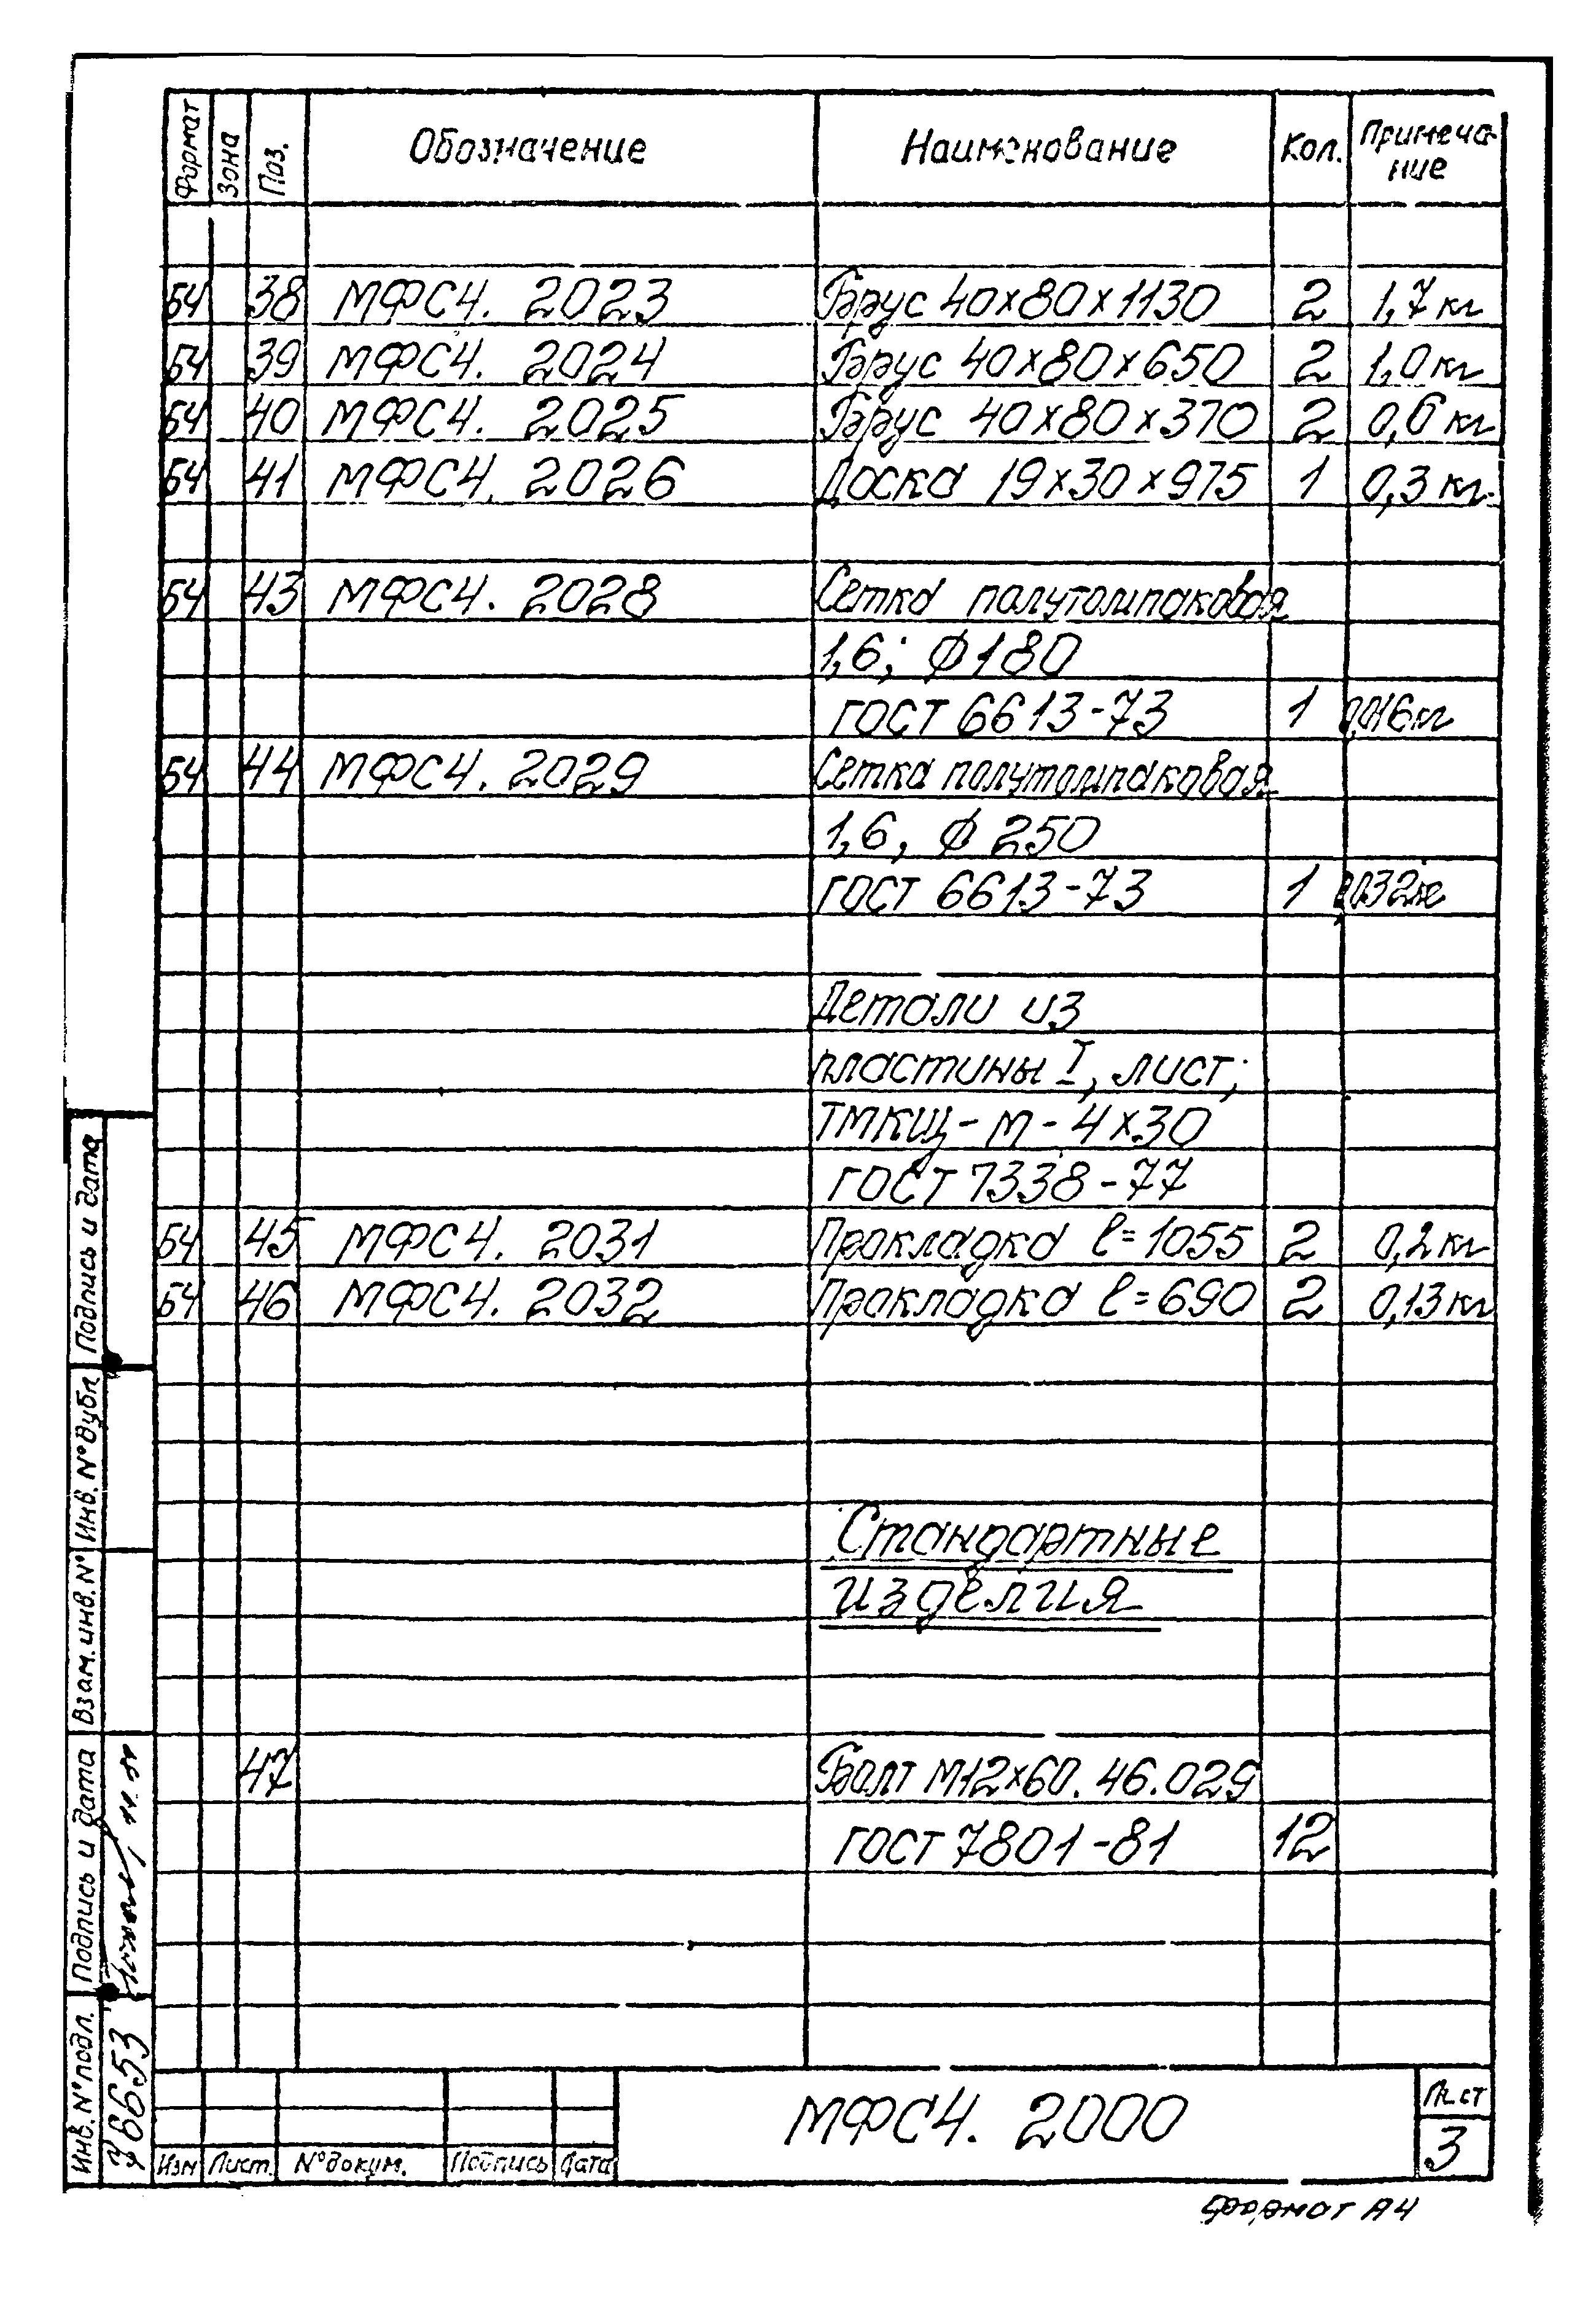 Формат Зона Поз. Обозначение Наименование Кол. Примеча-
ние
БЧ 38 МФСЧ. 2023 Брус 40х80х1130 2 1,7 кг
БЧ 39 МФСЧ. 2024 Брус 40х80х650 2 1,0 кг
БЧ 40 МФСЧ. 2025 Брус 40х80х370 2 0,6 кг
БЧ 41 МФСЧ. 2026 Доска 19х30х975 1 0,3 кг
БЧ 43 МФСЧ. 2028 Сетка полутомпаковая
1,6; ф180
ГОСТ 6613-73 1 0,016кг
БЧ 44 МФСЧ. 2029 Сетка полутомпаковая
1,6, ф 250
ГОСТ 6613-73 1 0,032кг
Детали из
пластины I, лист;
ТМКЩ-М-4х30
ГОСТ 7338-77
БЧ 45 МФСЧ. 2031 Прокладка ℓ=1055 2 0,2кг
БЧ 46 МФСЧ. 2032 Прокладка ℓ=690 2 0,13кг
Стандартные
изделия
47 Болт М12х60. 46.029
ГОСТ 7801-81 12
Подпись и дата
Инв. N° дубл.
Взам. инв. N°
Подпись и дата
Инв. N° подл.
46653
Изм Лист. N° докум. Подпись Дата
МФСЧ. 2000
Лист
3
Формат А4